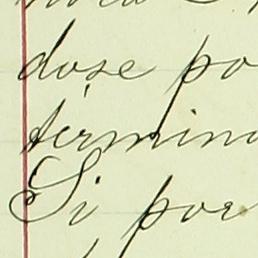 dose po
términ
Si por